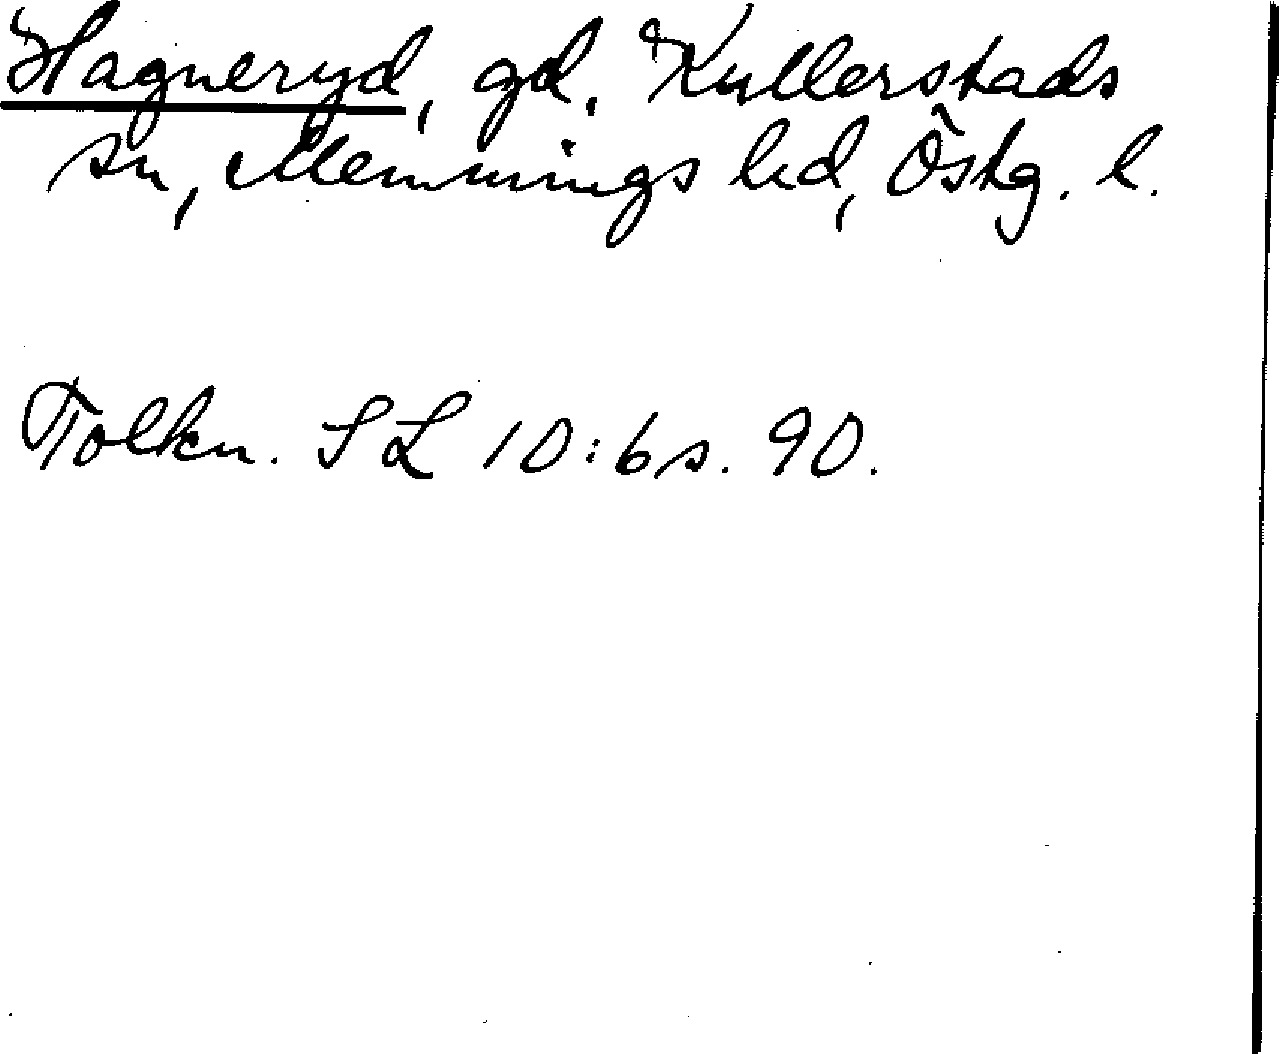 Hagneryd, gd, Kullerstads
sn, Memmings hd, Östg. l.
Tolkn. SL 10:6 s. 90.